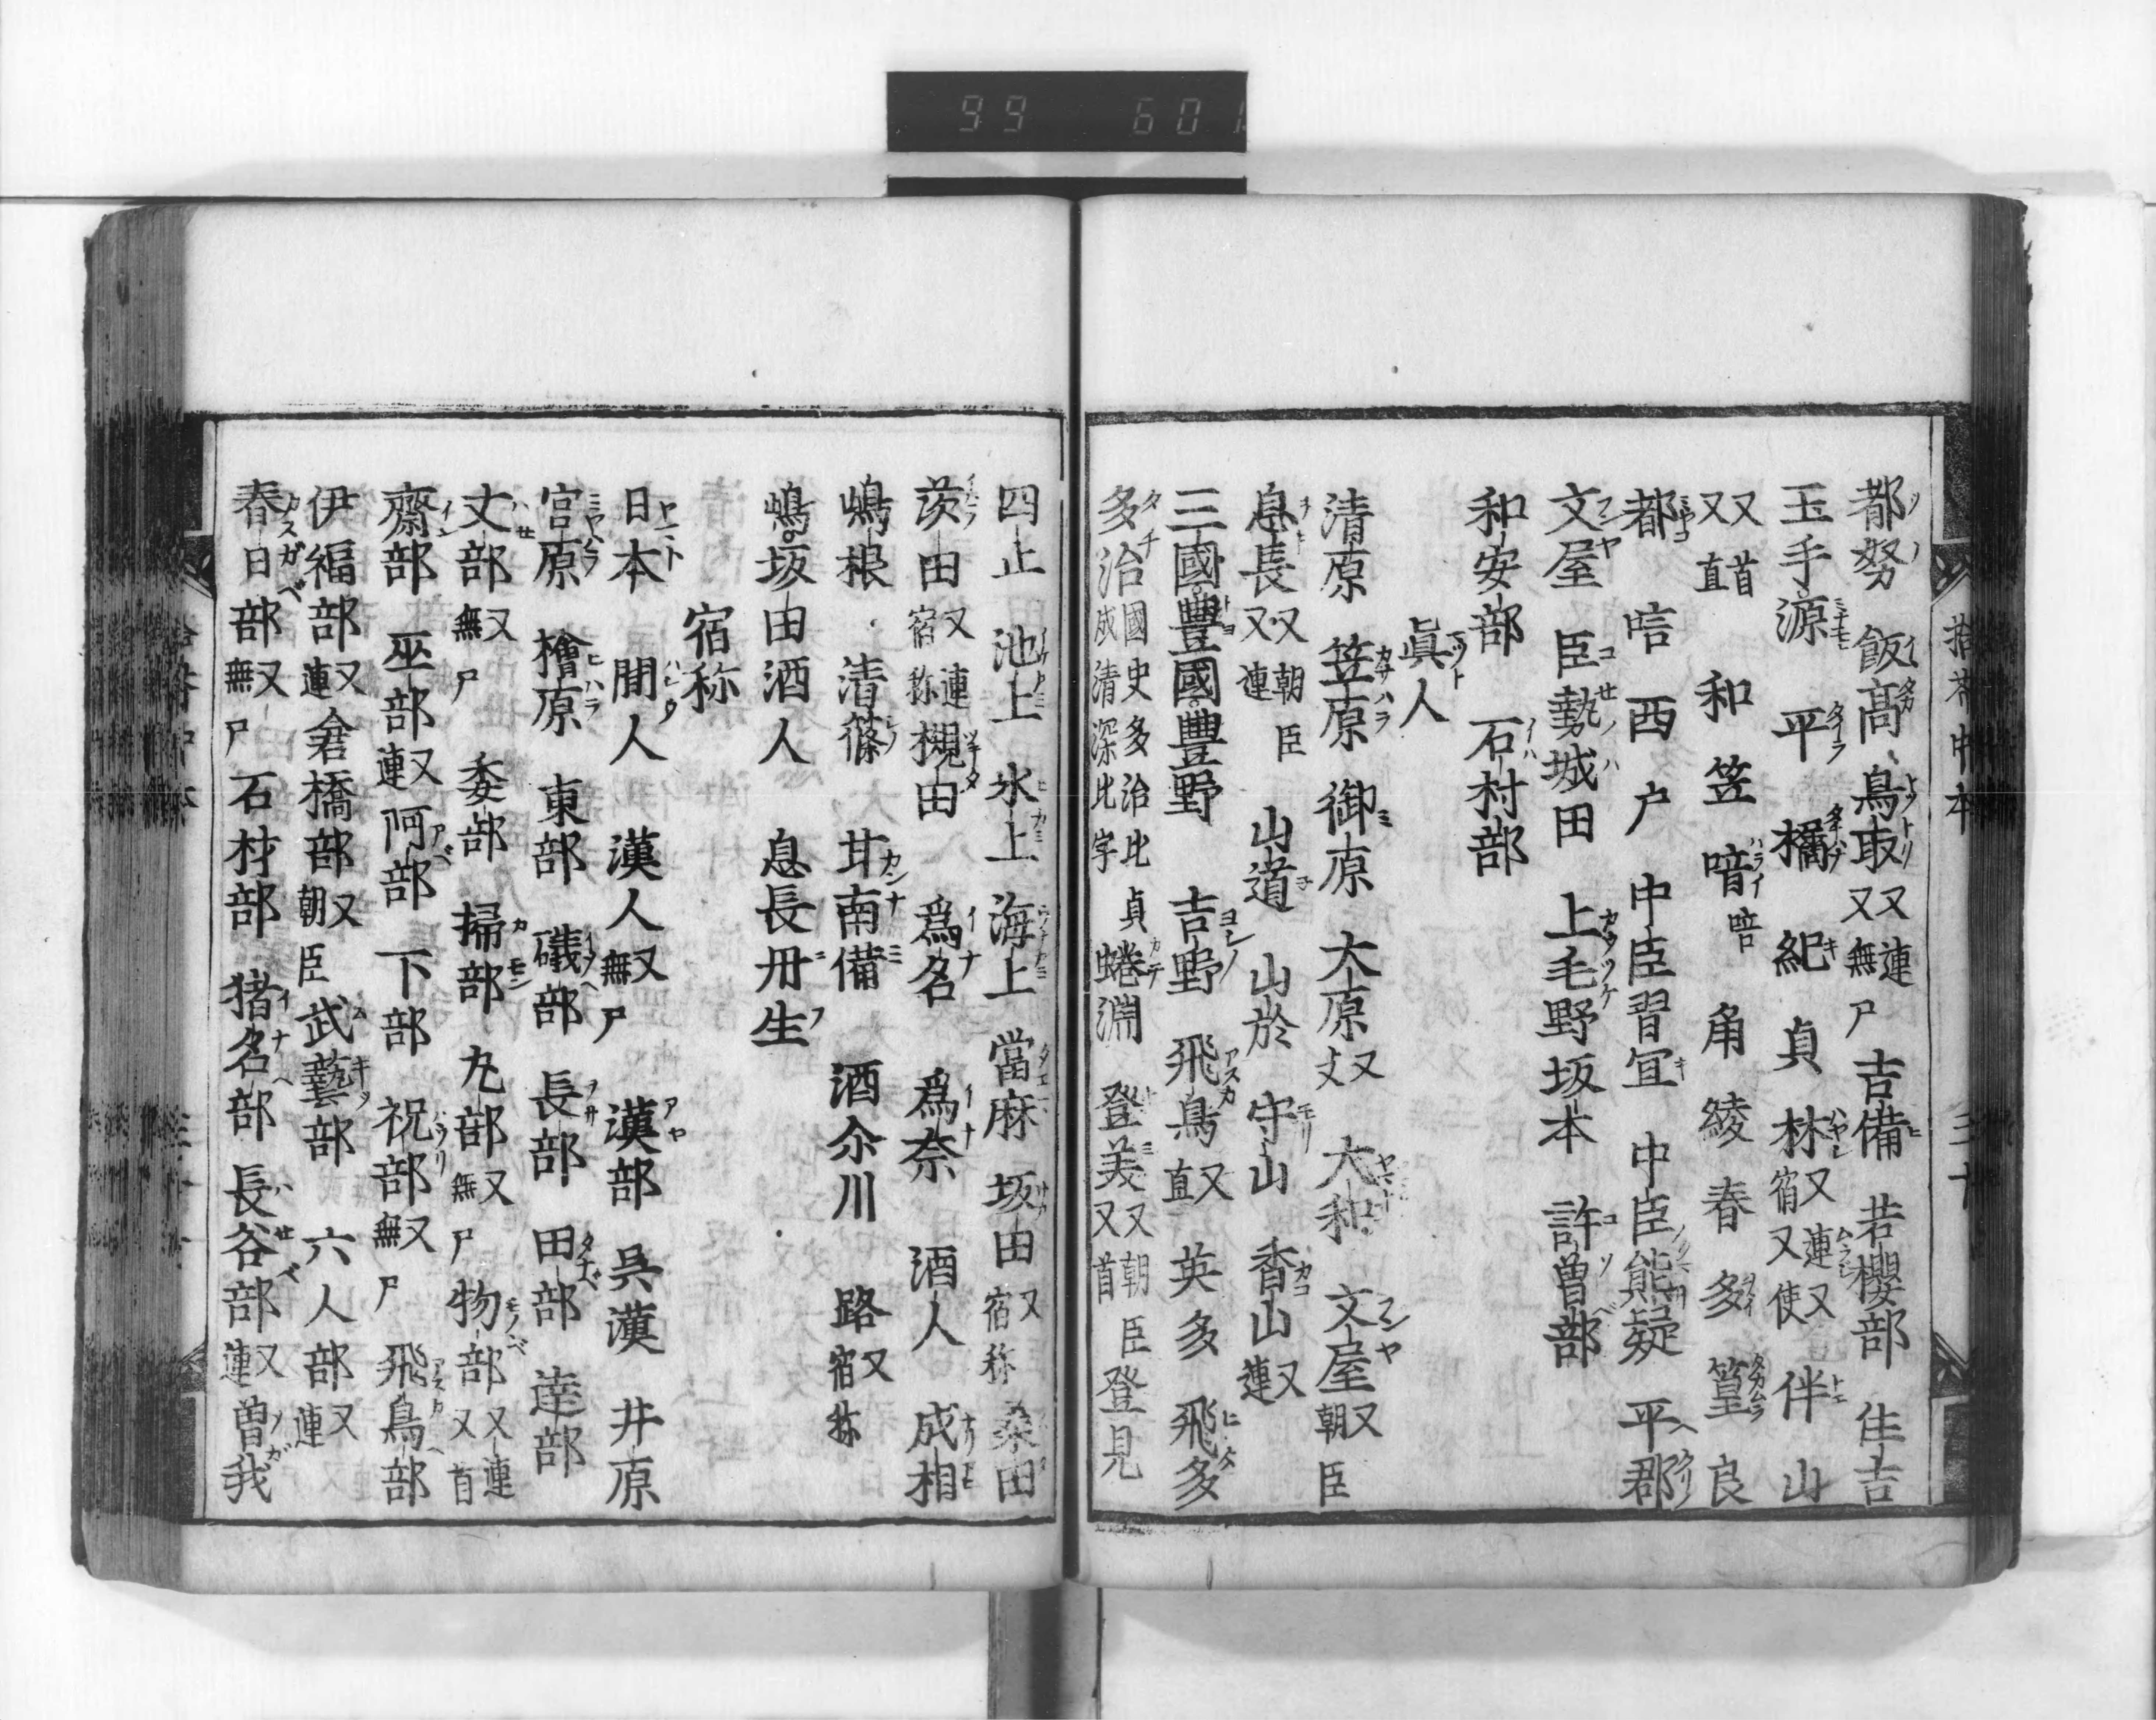 99 601
都努 飯髙 鳥取 又連 又無尸 吉備 若櫻部 住吉
玉手 源 平 橘 紀 貞 林 又連又宿又使 伴 山
又首 又直 和 笠 喑 角 綾 春 多 篁 良
都 唁 西 户 中臣習冝 中臣熊凝 平郡
文屋 臣勢城田 上毛野坂本 許曽部
和安部 石村部
眞人
清原 笠原 御原 大原 又 大和 文屋 又朝臣
息長 又朝臣 又連 山道 山於 守山 香山 又連
三國 豊國 豊野 吉野 飛鳥 又直 英多 飛多
多治 國史多治比貞 成清深比字 蜷淵 登美 又朝臣 又首 登見
四止 池上 氷上 海上 當麻 坂田 又宿祢 桑田
茨田 又連 宿祢 槻田 爲名 爲奈 酒人 成相
嶋根 清篠 甘南備 酒尒川 路 又宿祢
嶋坂田酒人 息長丹生
宿祢
日本 間人 漢人 又無尸 漢部 呉漢 井原
宮原 檜原 東部 礒部 長部 田部 達部
丈部 又無尸 委部 掃部 丸部 又無尸 物部 又連 又首
齋部 巫部 又連 阿部 下部 祝部 又無尸 飛鳥部
伊福部 又連 倉橋部 又朝臣 武藝部 六人部 又連
春日部 又無尸 石村部 猪名部 長谷部 又連 曽我